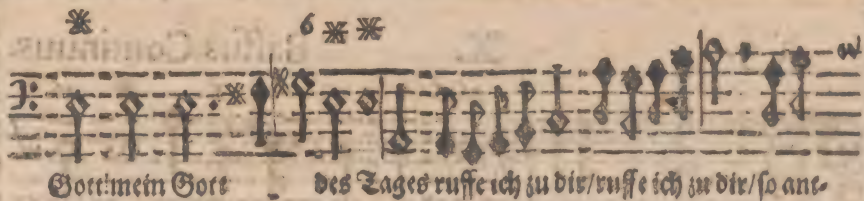 6
Gott!mein Gott des Tages ruffe ich zu dir/ruffe ich zu dir/so ant-